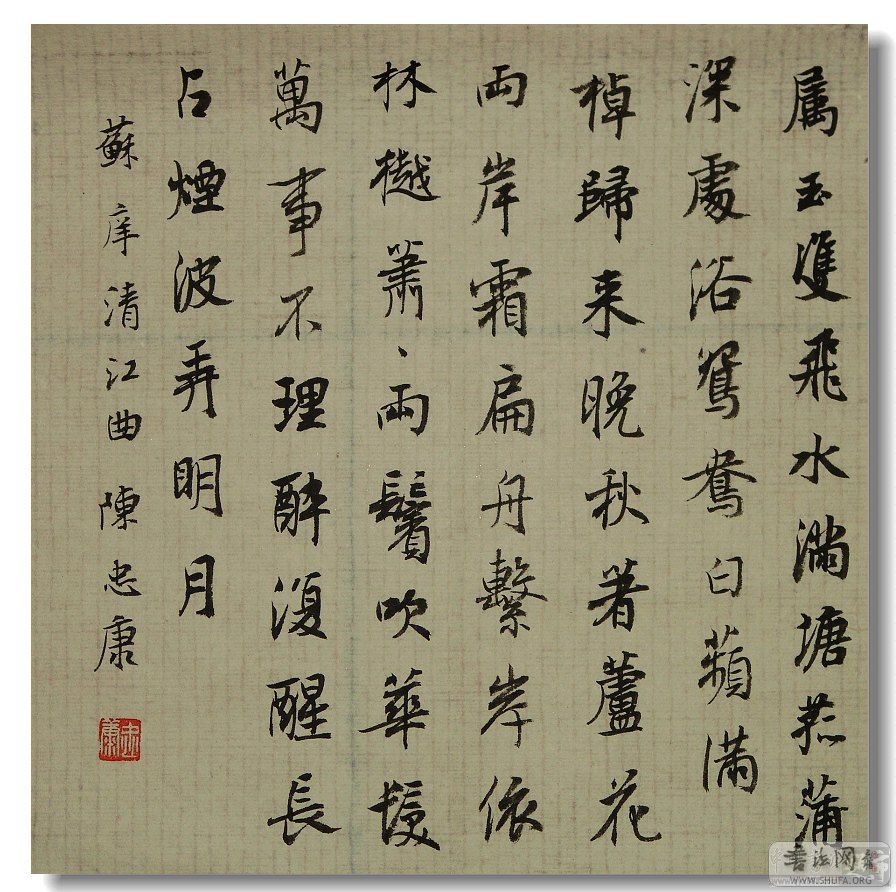 属玉雙飛水滿塘菰蒲
深處浴鴛鴦白蘋滿
棹歸来晚秋著蘆花
兩岸霜扁舟繫岸依
林樾蕭〻兩鬢吹華髮
萬事不理醉復醒長
占煙波弄明月
蘇庠清江曲 陳忠康
忠康
書法网
WWW.SHUFA.ORG